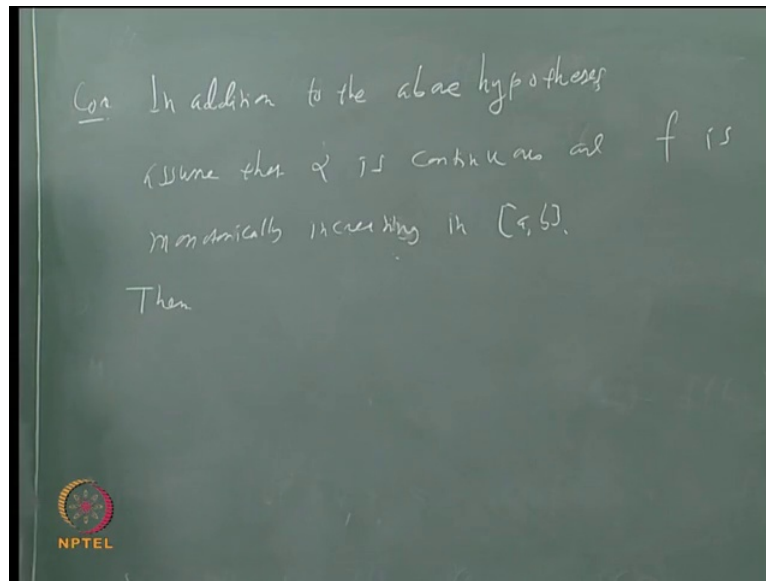 Cor. In addition to the above hypotheses
assume that α is continuous and f is
monotonically increasing in [a, b].
Then
NPTEL